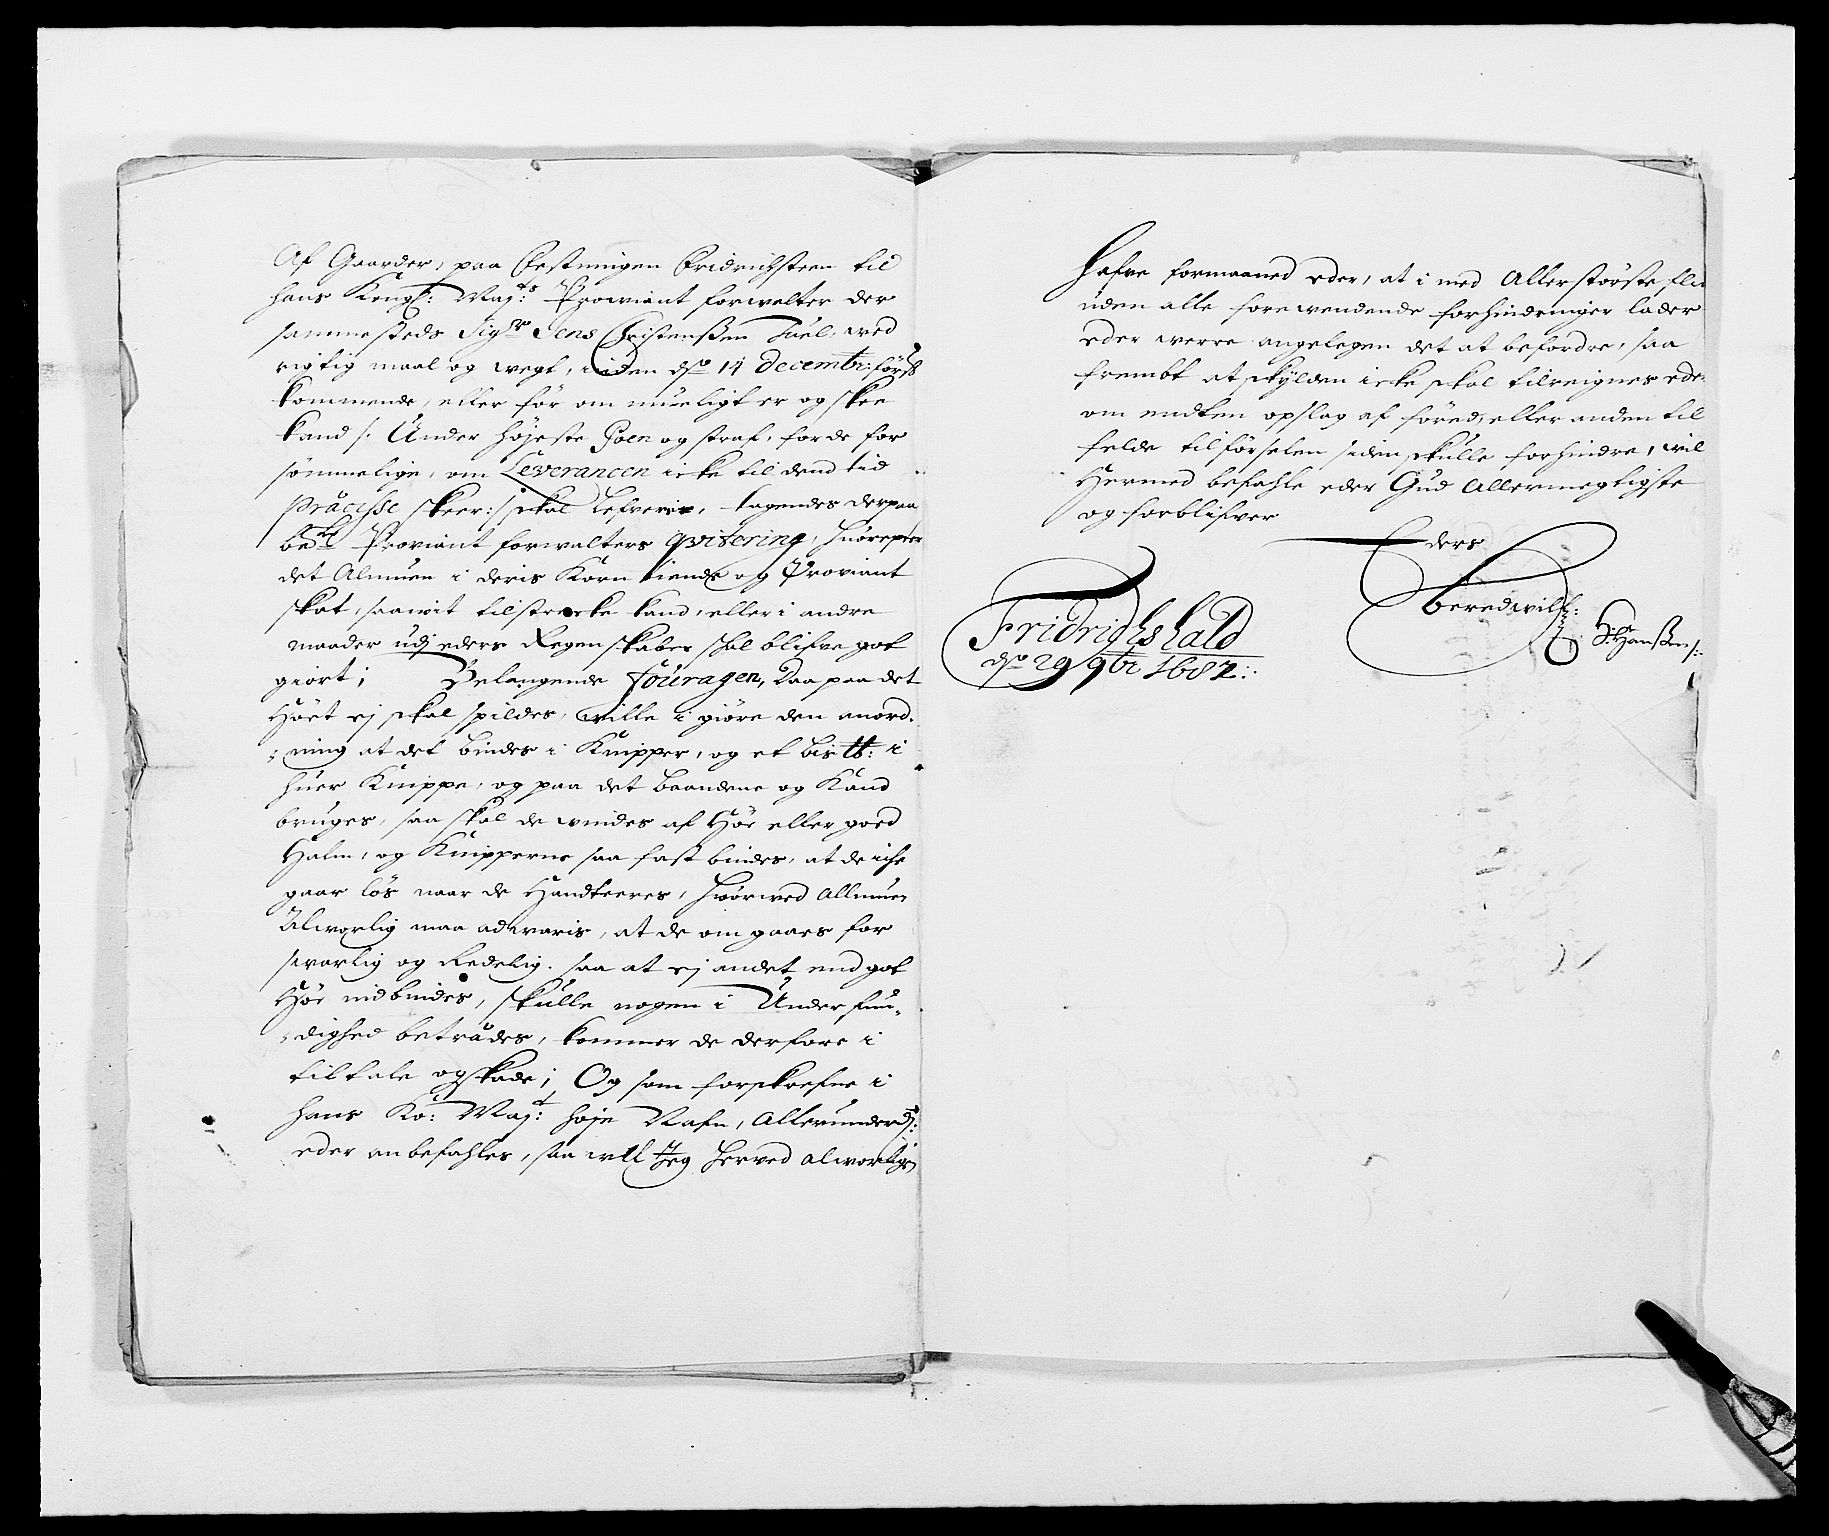 Af Gaarder, paa Festningen Fridrichsteen til
hans Kongl: Maj:ts Proviant forvalter der
sammesteds Sigr Jens Christenßen Juel, wed
rigtig maal og wegt, inden dend 14 Decembr: först
kommende, eller för om mueligt er og skee
kand /: Under höjeste Poen og straf, for de for
sömmelige, om Leverancen icke til dend tid
Præcisse skeer :/ skal lefveris, tagendes derpaa
bete Proviant forvalters qvitering, huorefter
det Almuen i deris Korn tiende og Proviant
skat, saawit tilstrecke kand, eller i andre
maader udj eders Regenskaber skal blifve got
giort; Belangende Fouragen, Daa paa det
Höet ej skal spildes, wille i giöre den anord-
-ning at det bindes i Knipper, og et bis ℔: i
huer Knippe, og paa det baandene og Kand
bruges, saa skal de windes af Höe eller goed
Halm, og Knipperne saa fast bindes, at de iche
gaar lös naar de Handteeres, hworwed Allmuen
Alworlig maa adwaris, at de omgaaes for
swarlig og Redelig. saa at ej andet end got
Höe indbindes, skulle nogen i Underfun-
-dighed betrædes, kommer de derfore i
tiltale og skade; Og som forskrefne i
hans Ko: Maj:t höje Nafn, Allerunderd:
eder anbefahles, saa will Jeg herved alworligen
Hafve formaaned eder, at i med Allerstörste flid
uden alle forewendende forhindringer lader
eder werre angelegen det at befordre, saa
frembt at skylden icke skal tilreignes eder
om endten opslag af föred, eller anden til
felde tilförselen siden skulle forhindre, wil
Hermed befahle eder Gud Allermegtigste
og forblifver
Eders
Beredwill:
H: Hanßen /:
Fridrichshald
dend 29 9br 1687: